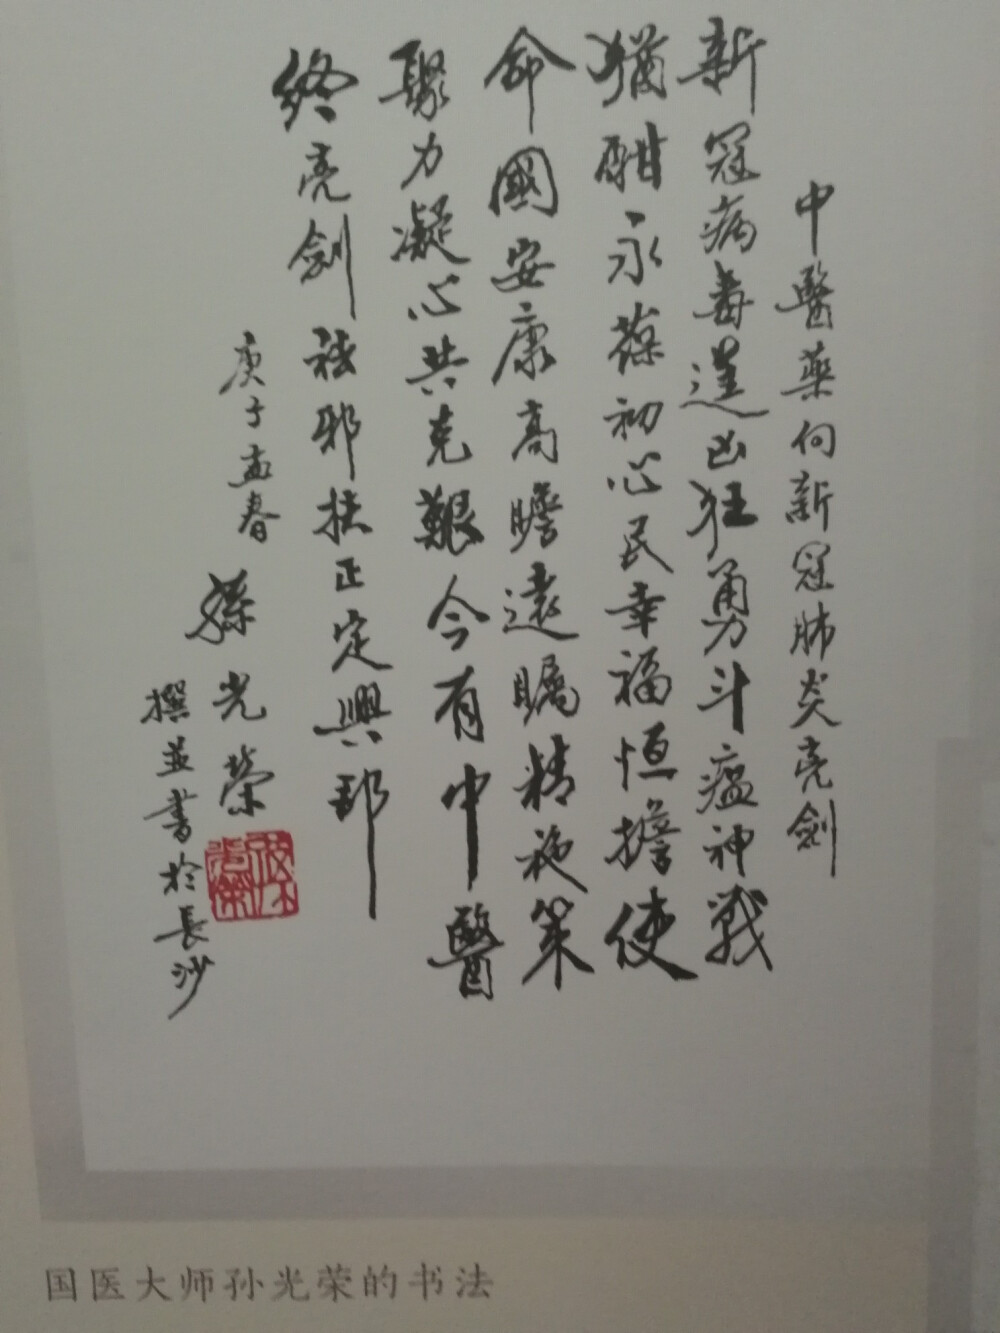 中醫藥向新冠肺炎亮劍
新冠病毒逞凶狂勇斗瘟神戰
猶酣永葆初心民幸福恒擔使
命國安康高瞻遠矚精施策
聚力凝心共克艱今有中醫
終亮劍祛邪扶正定興邦
庚子孟春
孫光榮
撰並書於長沙
国医大师孙光荣的书法